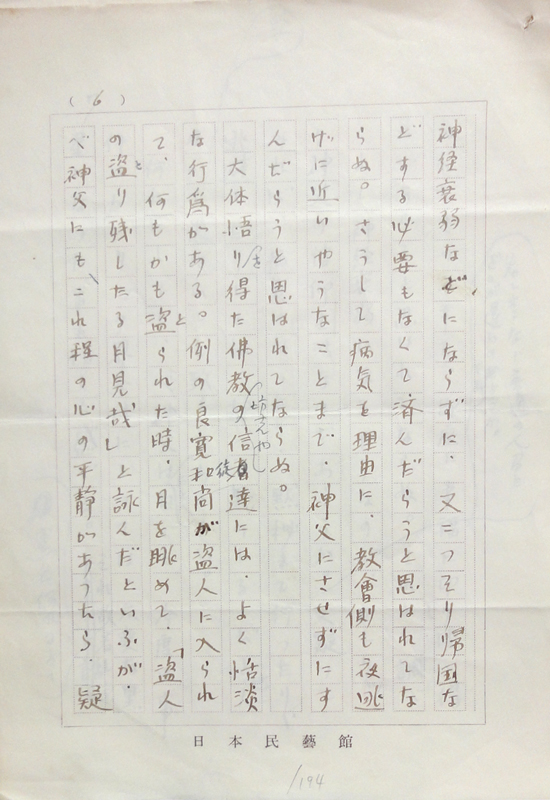 (6)
神経衰弱などにならずに、又こつそり帰国な
どする必要もなくて済んだらうと思はれてな
らぬ。さうして病気を理由に、教會側も夜逃
げに近いやうなことまで、神父にさせずにす
んだらうと思はれてならぬ。
大体悟りを得た佛教の坊さんや信徒達には、よく恬淡
な行爲がある。例の良寛和尚が盗人に入られ
て、何もかも盗と られた時、月を眺めて、「盗人
の盗と り残したる月見哉」と詠んだといふが、
ペ神父にも、これ程の心の平静があつたら、疑
日本民藝館
/194